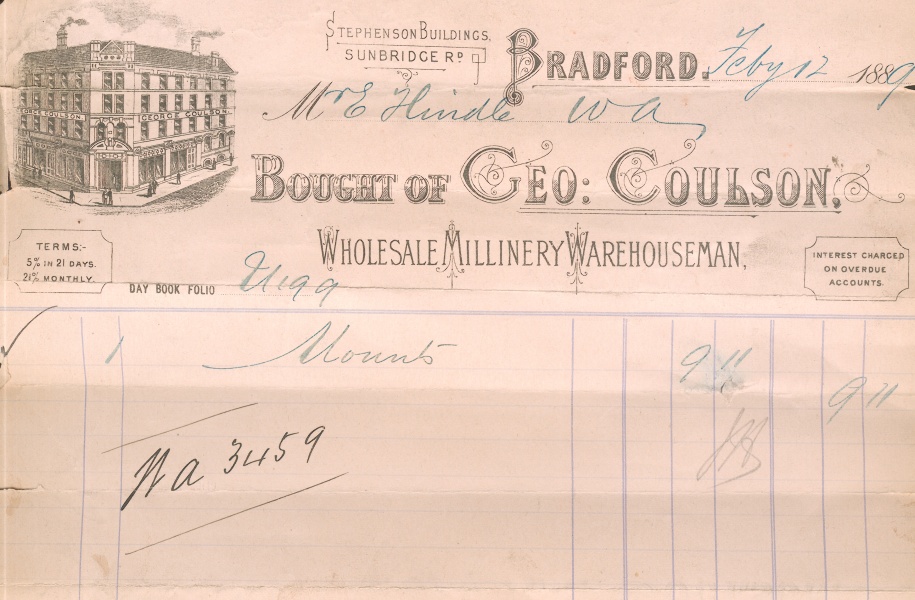 STEPHENSON BUILDINGS,
SUNBRIDGE RD
BRADFORD. Feby 12 1889
Mr E Hindle W a
GEORGE COULSON
GEORGE COULSON
BOUGHT OF GEO: COULSON,
WHOLESALE MILLINERY WAREHOUSEMAN,
TERMS:-
5% IN 21 DAYS.
2½% MONTHLY.
INTEREST CHARGED
ON OVERDUE
ACCOUNTS.
DAY BOOK FOLIO
1 Mounts 9 11
9 11
Wa 3459